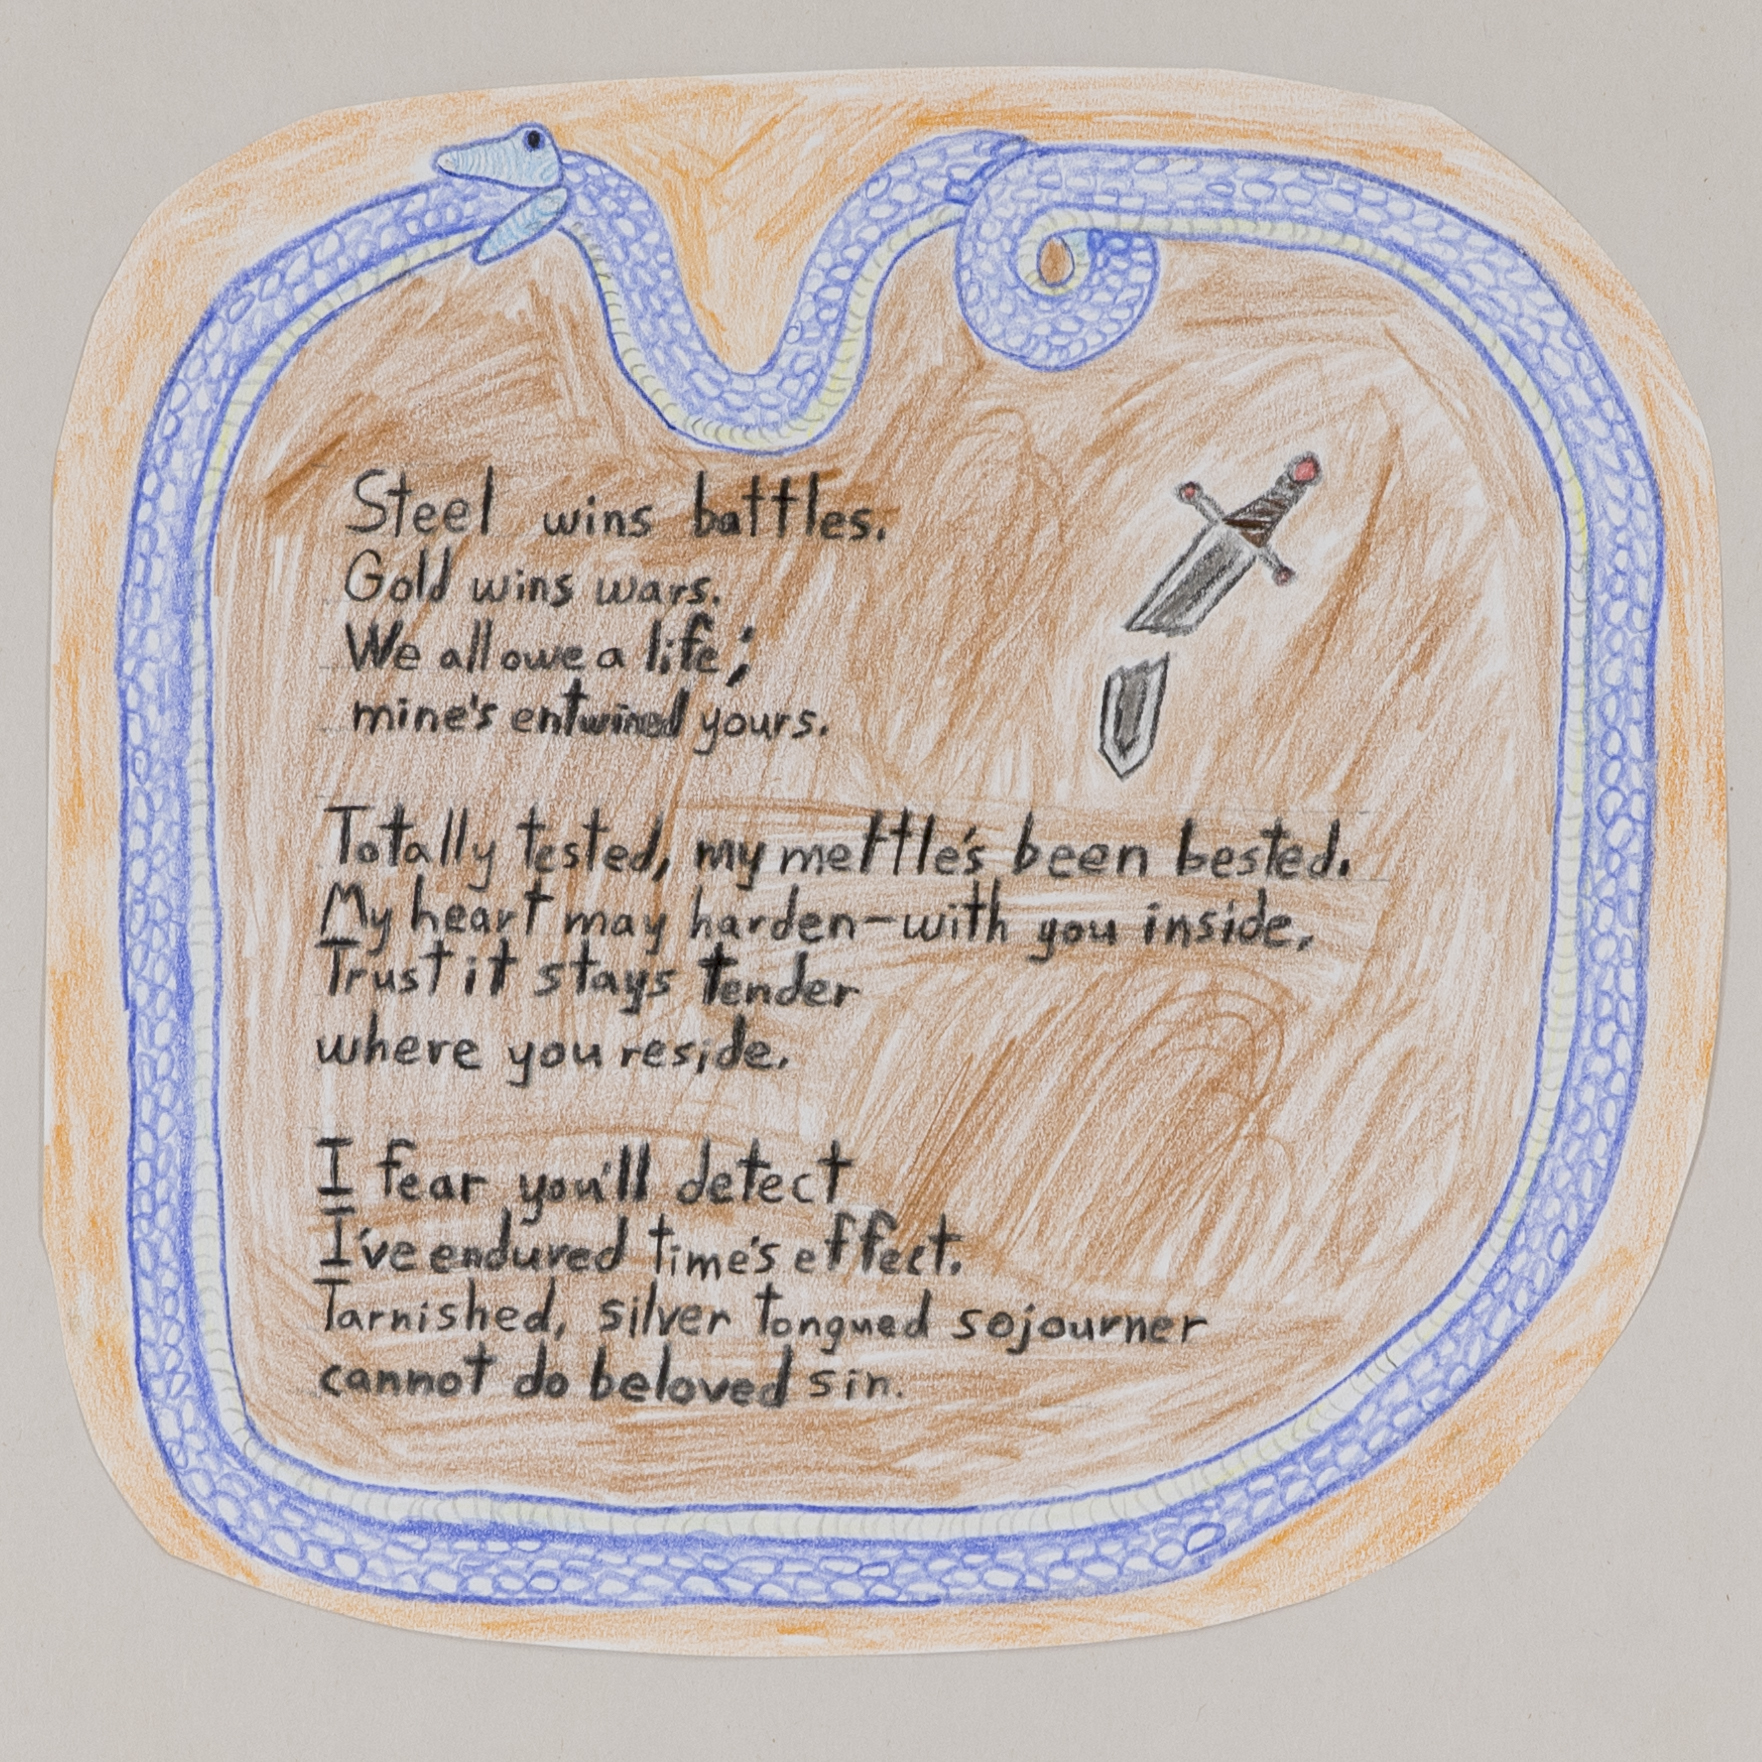 Steel wins battles.
Gold wins wars.
We all owe a life;
mine's entwined yours.
Totally tested, my mettle's been bested.
My heart may harden—with you inside,
Trust it stays tender
where you reside.
I fear you'll detect
I've endured time's effect.
Tarnished, silver tongued sojourner
cannot do beloved sin.